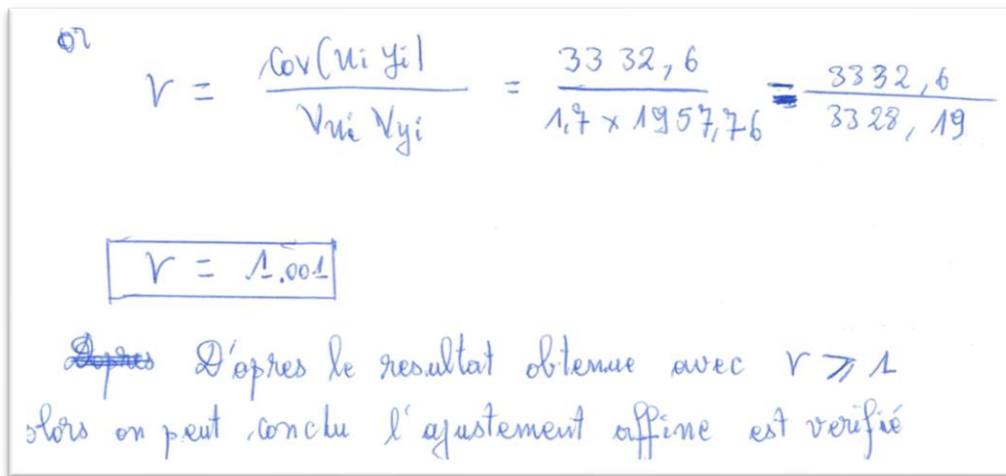 or
r = Cov(ui yi) / Vui Vyi = 3332,6 / 1,7 × 1957,76 = 3332,6 / 3328,19
r = 1.001
D'opres le resultat obtenue avec r ⩾ 1
alors on peut conclu l'ajustement affine est verifié